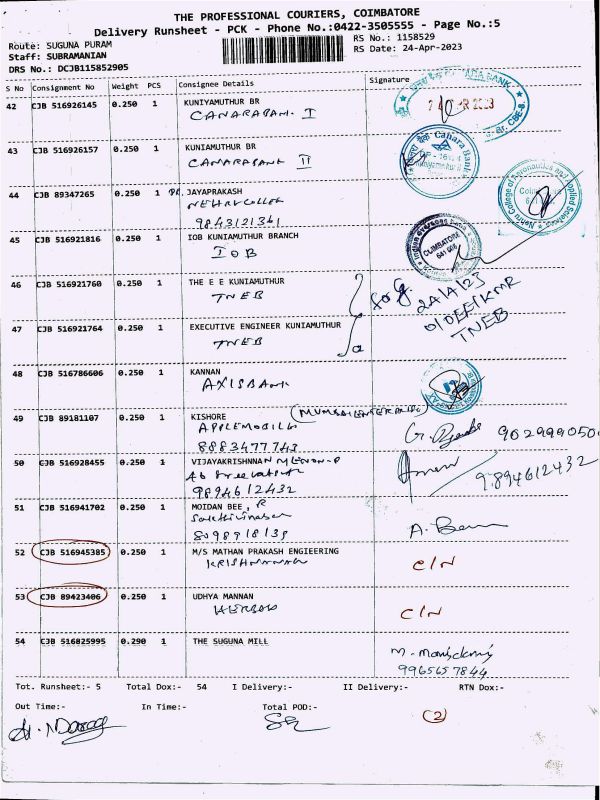 THE PROFESSIONAL COURIERS, COIMBATORE
Delivery Runsheet - PCK - Phone No.:0422-3505555 - Page No.:5
Route: SUGUNA PURAM
RS No.: 1158529
Staff: SUBRAMANIAN
RS Date: 24-Apr-2023
DRS No.: DCJB115852905
S No Consignment No Weight PCS Consignee Details Signature
42 CJB 516926145 0.250 1 KUNIYAMUTHUR BR
CANARABANK I
43 CJB 516926157 0.250 1 KUNIAMUTHUR BR
CANARABANK II
Canara Bank
44 CJB 89347265 0.250 1 JAYAPRAKASH
NEHRU COLLEGE
9843121341
Nehru College of Aeronautics and Applied Sciences
45 CJB 516921816 0.250 1 IOB KUNIAMUTHUR BRANCH
IOB
COIMBATORE
46 CJB 516921760 0.250 1 THE E E KUNIAMUTHUR
TNEB
24/4/23
O/DEE/KMR
TNEB
47 CJB 516921764 0.250 1 EXECUTIVE ENGINEER KUNIAMUTHUR
TNEB
48 CJB 516786606 0.250 1 KANNAN
AXIS BANK
49 CJB 89181107 0.250 1 KISHORE
APPLE MOBILE
8883477743
902999050
50 CJB 516928455 0.250 1 VIJAYAKRISHNNAN MENON-P
9894612432
9894612432
51 CJB 516941702 0.250 1 MOIDAN BEE, R
52 CJB 516945385 0.250 1 M/S MATHAN PRAKASH ENGIEERING
C/N
53 CJB 89423406 0.250 1 UDHYA MANNAN
C/N
54 CJB 516825995 0.290 1 THE SUGUNA MILL
9965657844
Tot. Runsheet:- 5 Total Dox:- 54 I Delivery:- II Delivery:- RTN Dox:-
Out Time:- In Time:- Total POD:-
(2)